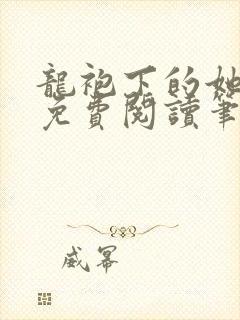 龍袍下的她
免費閱讀筆
威冪